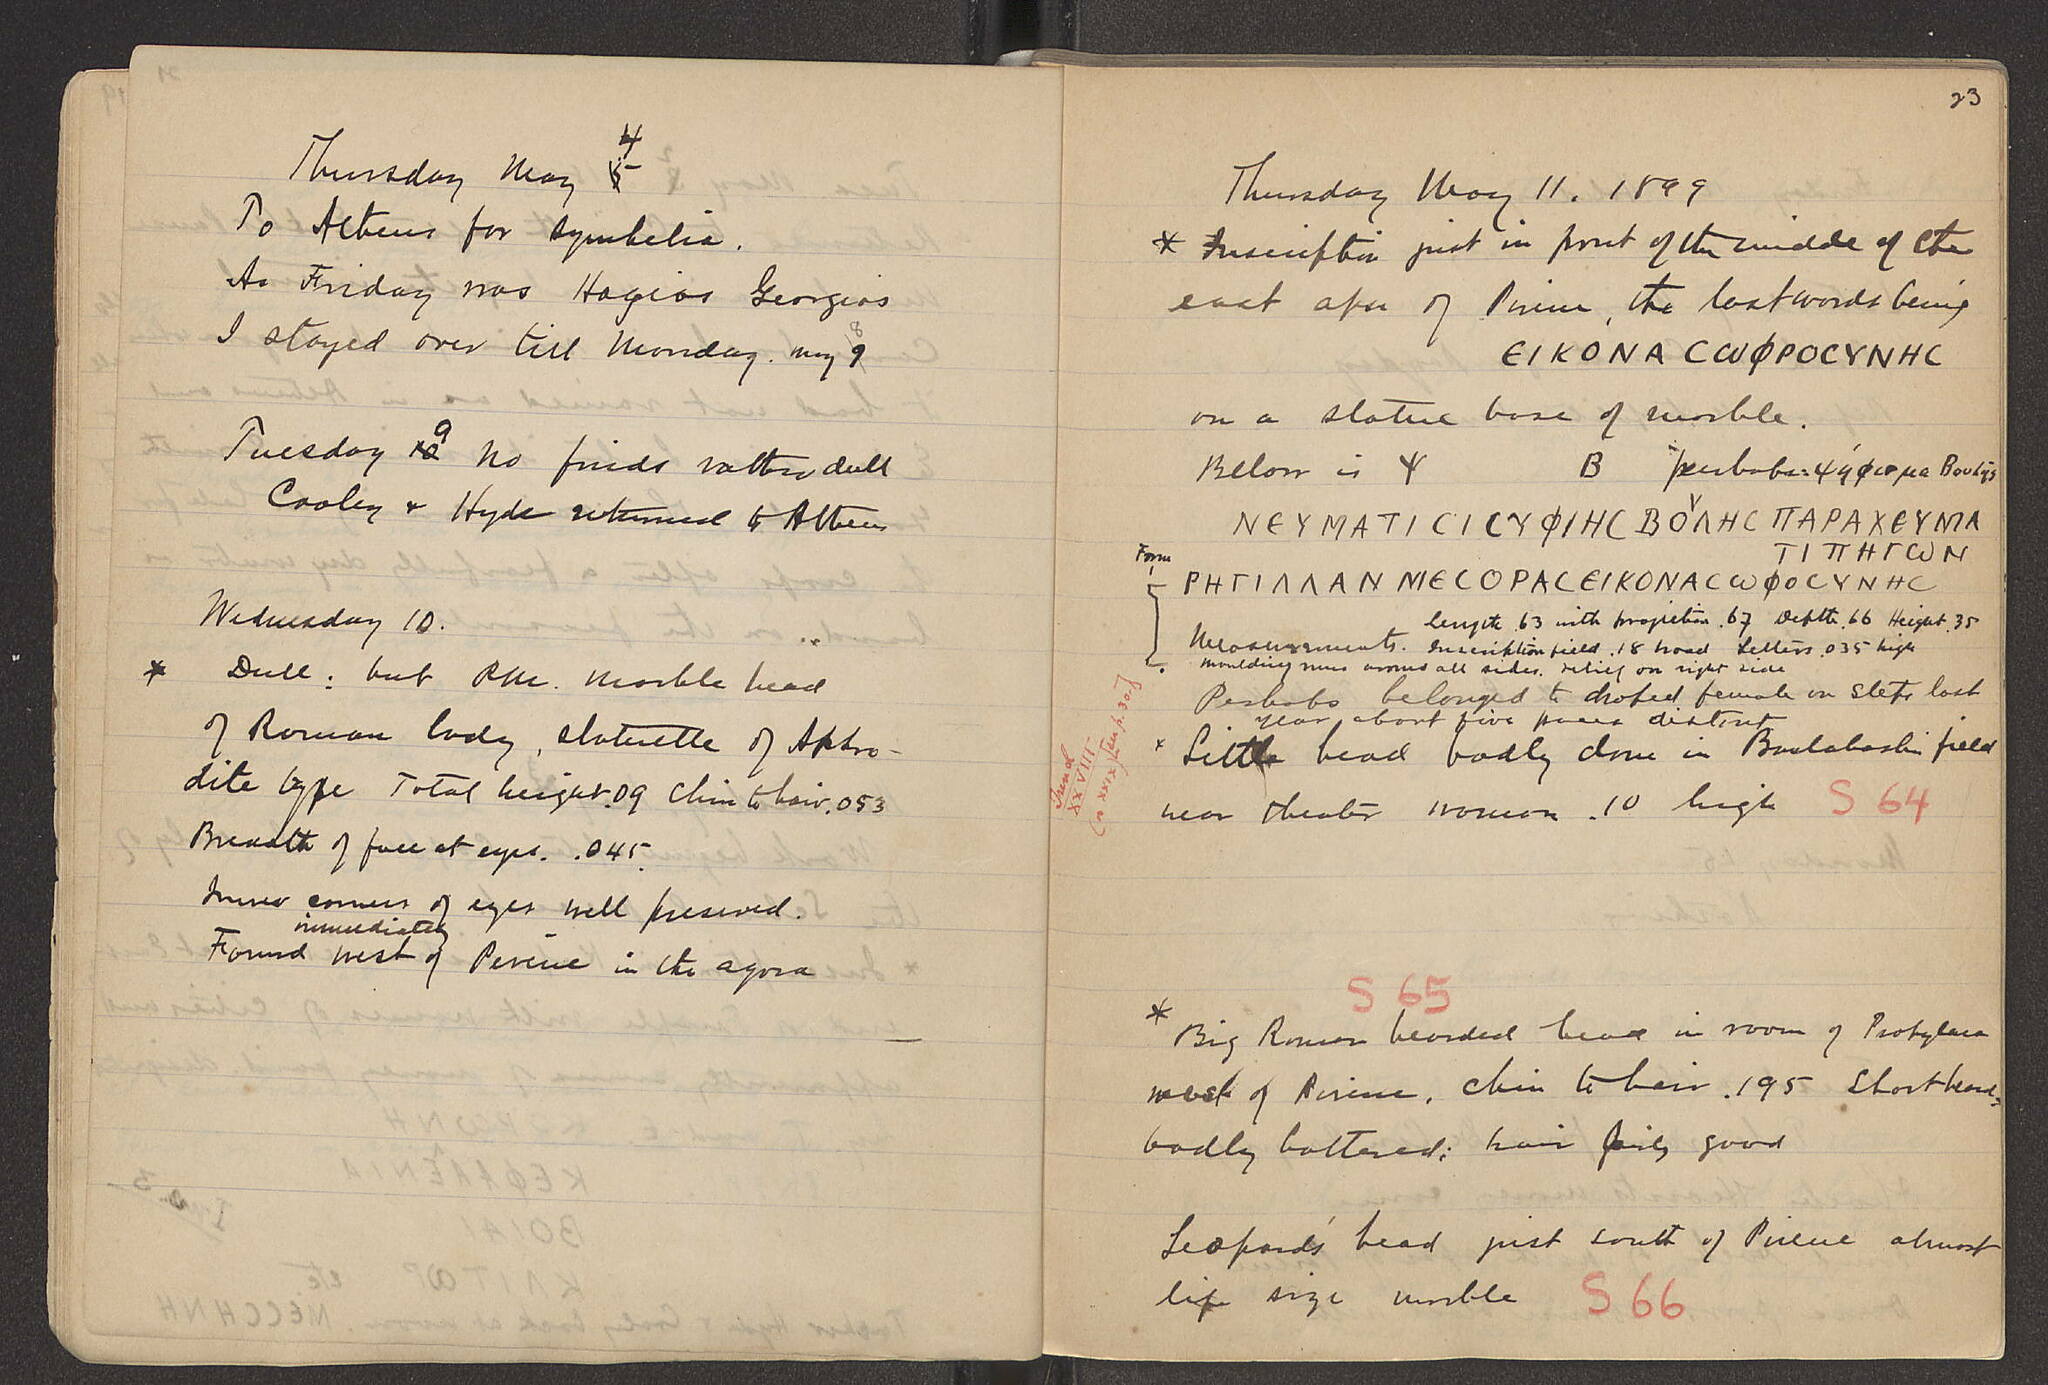 Thursday May 4
To Athens for Symbelia.
As Friday was Hagios Georgios
I stayed over till Monday. May 8
Tuesday 9 No finds rather dull
Cooley & Hyde returned to Athens
Wednesday 10.
* Dull: but P.M. Marble head
of Roman lady, statuette of Aphro-
dite type Total height .09 Chin to hair .053
Breadth of face at eyes. .045.
Inner corners of eyes well preserved.
immediately
Found west of Pirene in the agora
23
Thursday May 11. 1899
* Inscription just in front of the middle of the
east apse of Pirene, the last words being
ΕΙΚΟΝΑ CωΦΡΟCΥΝΗC
on a statue base of marble.
Below is Ψ Β perhaps = Ψήφισμα Βουλῆς
ΝΕΥΜΑΤΙ CΙCΥΦΙΗC ΒΟΥΛΗC ΠΑΡΑ ΧΕΥΜΑ
ΤΙ ΠΗΓωΝ
Form
ΡΗΓΙΛΛΑΝ ΜΕCΟΡΑC ΕΙΚΟΝΑ CωΦΟCΥΝΗC
Length .63 with projection .67 Depth .66 Height .35
Measurements. Inscription field .18 broad Letters .035 high
moulding runs around all sides. relief on right side
Perhaps belonged to draped female on steps last
year about five paces distant
* Little head badly done in Bashabashi field
near theater woman .10 high S 64
S 65
* Big Roman bearded head in room of Propylaea
west of Pirene. Chin to hair .195 Short beard
badly battered: hair fairly good
Leopard's head just south of Pirene almost
life size marble S 66